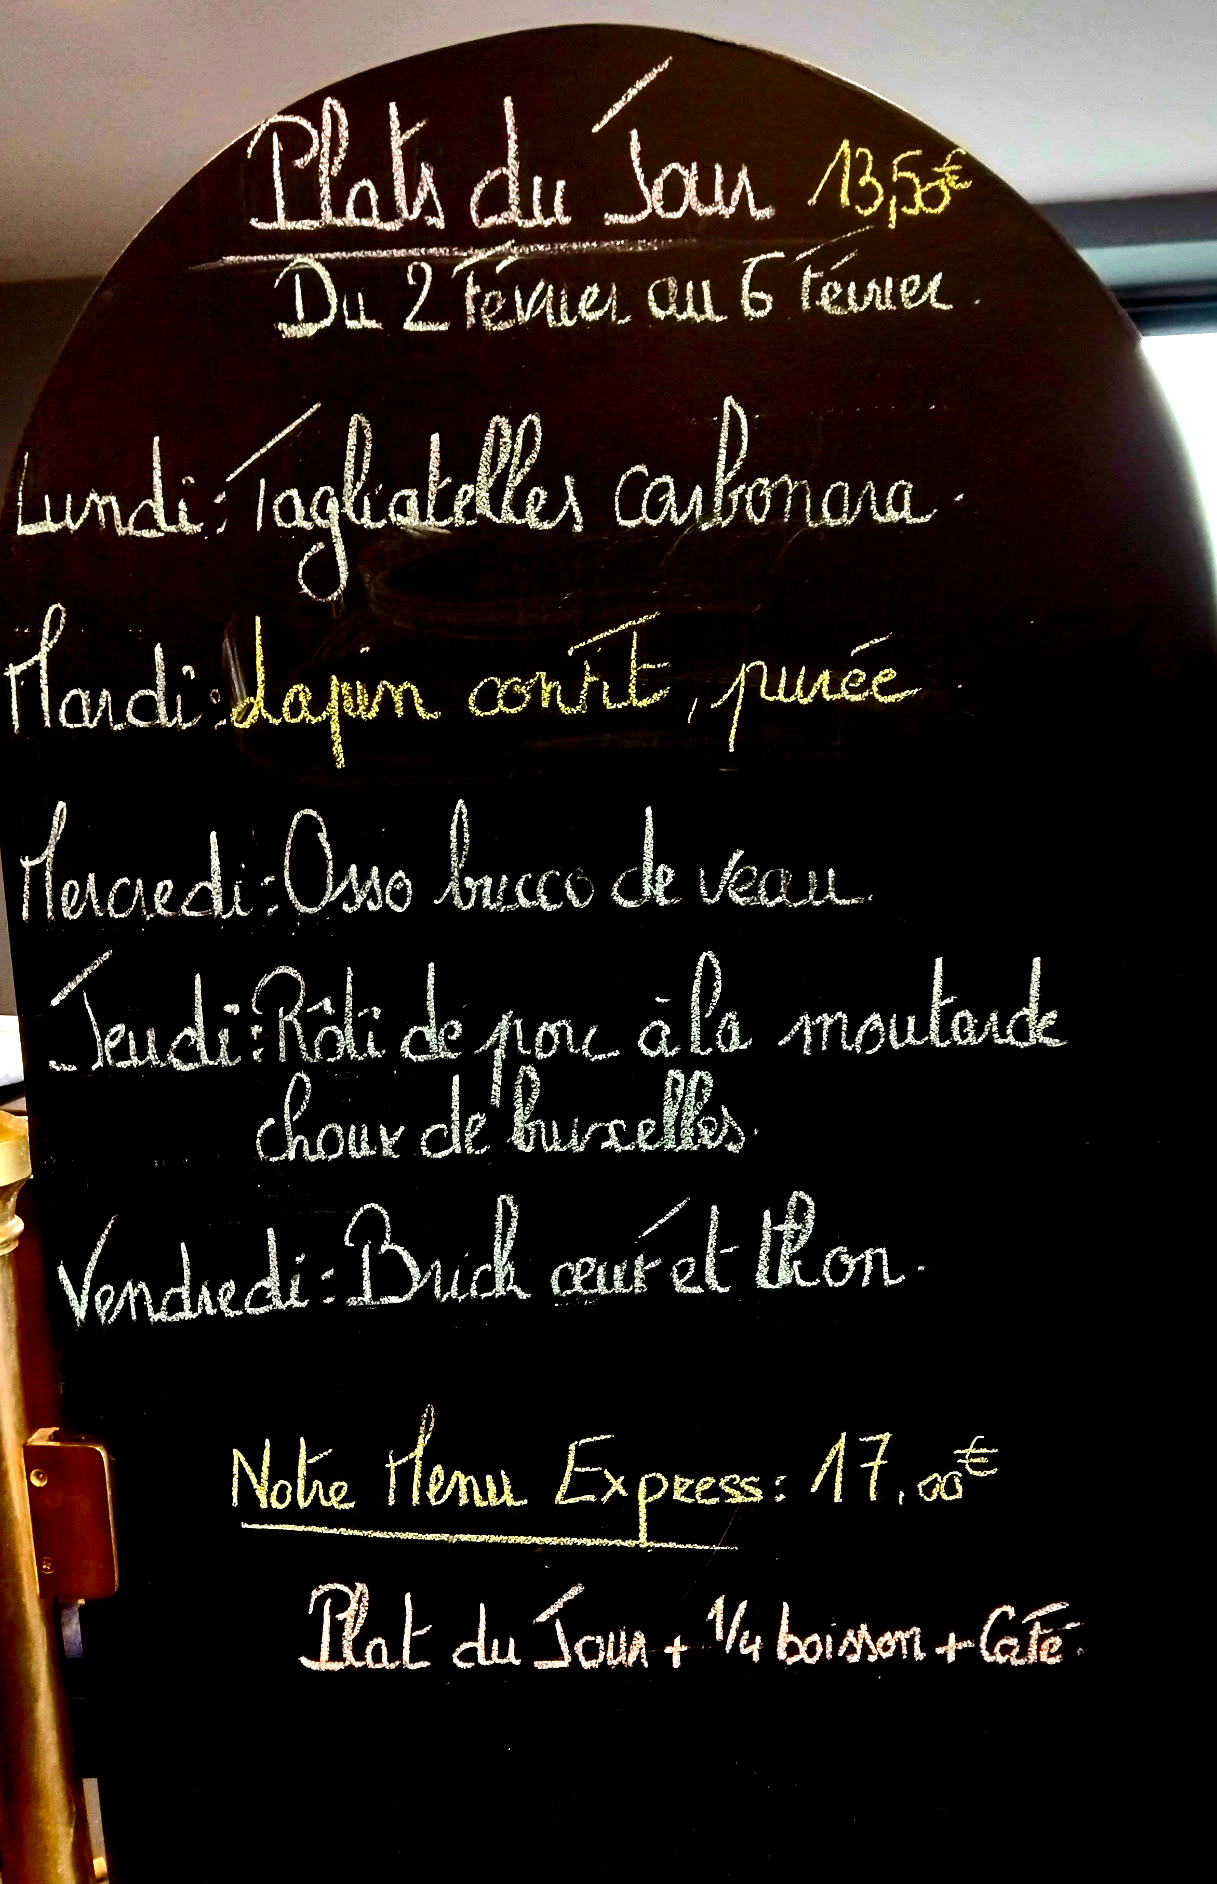 Plats du Jour 13,50€
Du 2 Février au 6 Février.
Lundi: Tagliatelles carbonara.
Mardi: Lapin confit, purée.
Mercredi: Osso bucco de veau.
Jeudi: Rôti de porc à la moutarde
choux de bruxelles.
Vendredi: Brick œuf et thon.
Notre Menu Express: 17,00€
Plat du Jour + 1/4 boisson + Café.